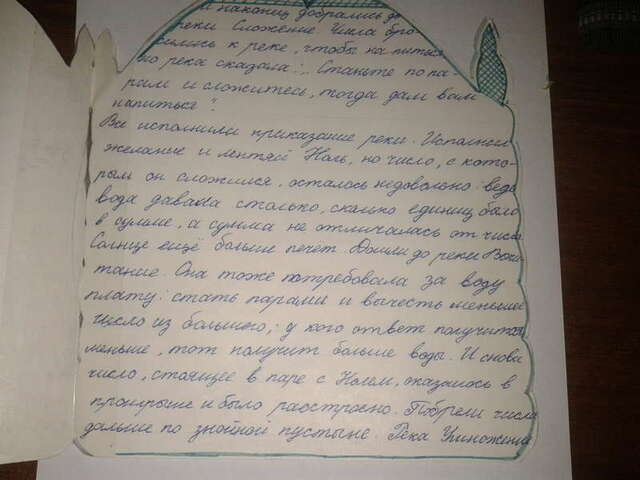 и наконец добрались до
реки Сложение. Числа бро-
сились к реке, чтобы напиться,
но река сказала: „Станьте по па-
рам и сложитесь, тогда дам вам
напиться".
Все исполнили приказание реки. Исполнил
желание и лентяй Ноль, но число, с кото-
рым он сложился, осталось недовольно: ведь
вода давала столько, сколько единиц было
в сумме, а сумма не отличалась от числа
Солнце ещё больше печёт. Дошли до реки Вычи-
тание. Она тоже потребовала за воду
плату: стать парами и вычесть меньшее
число из большого; у кого ответ получится
меньше, тот получит больше воды. И снова
число, стоящее в паре с Нолем, оказалось в
проигрыше и было расстроено. Побрели числа
дальше по знойной пустыне. Река Умножение